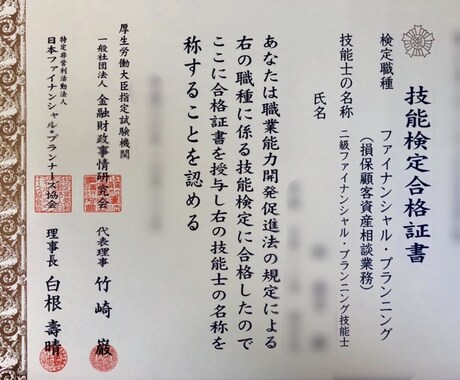 技能検定合格証書
検定職種
ファイナンシャル・プランニング
(損保顧客資産相談業務)
技能士の名称
二級ファイナンシャル・プランニング技能士
氏名
あなたは職業能力開発促進法の規定による
右の職種に係る技能検定に合格したので
ここに合格証書を授与し右の技能士の名称を
称することを認める
厚生労働大臣指定試験機関
一般社団法人 金融財政事情研究会
代表理事 竹崎 巌
特定非営利活動法人
日本ファイナンシャル・プランナーズ協会
理事長 白根 壽晴